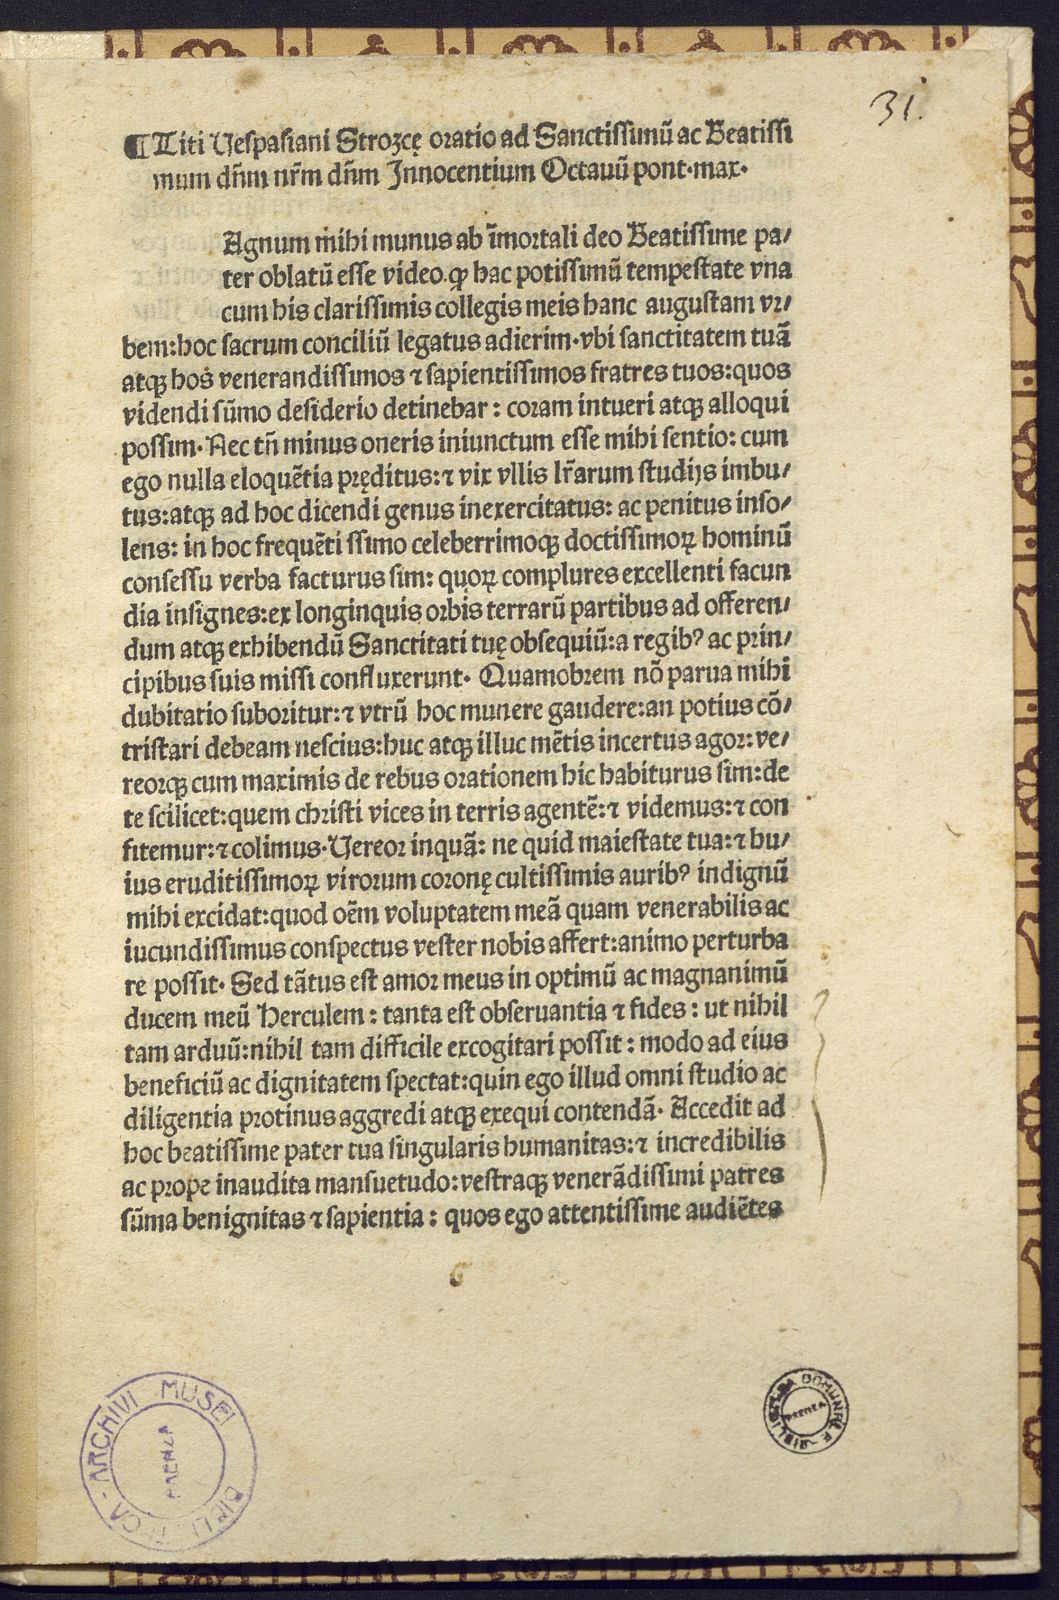 31.
¶ Titi Vespasiani Strozcę oratio ad Sanctissimũ ac Beatissi
mum dñm nr̃m dñm Innocentium Octauũ pont·max·
Agnum mihi munus ab ĩmortali deo Beatissime pa/
ter oblatũ esse video.ꝙ hac potissimũ tempestate vna
cum his clarissimis collegis meis hanc augustam vr/
bem:hoc sacrum conciliũ legatus adierim·vbi sanctitatem tuã
atqꝫ hos venerandissimos ⁊ sapientissimos fratres tuos:quos
videndi sũmo desiderio detinebar: coram intueri atqꝫ alloqui
possim· Nec tñ minus oneris iniunctum esse mihi sentio: cum
ego nulla eloquẽtia pręditus:⁊ vix vllis lr̃arum studijs imbu/
tus:atqꝫ ad hoc dicendi genus inexercitatus: ac penitus inso/
lens: in hoc frequẽti ssimo celeberrimoqꝫ doctissimoꝝ hominũ
consessu verba facturus sim: quoꝝ complures excellenti facun
dia insignes:ex longinquis orbis terrarũ partibus ad offeren/
dum atqꝫ exhibendũ Sanctitati tuę obsequiũ:a regibꝰ ac prin/
cipibus suis missi confluxerunt· Quamobrem nõ parua mihi
dubitatio suboritur:⁊ vtrũ hoc munere gaudere:an potius cõ/
tristari debeam nescius:huc atqꝫ illuc mẽtis incertus agor:ve/
reorqꝫ cum maximis de rebus orationem hic habiturus sim:de
te scilicet:quem christi vices in terris agentẽ:⁊ videmus:⁊ con
fitemur:⁊ colimus·Vereor inquã: ne quid maiestate tua:⁊ hu/
ius eruditissimoꝝ virorum coronę cultissimis auribꝰ indignũ
mihi excidat:quod oẽm voluptatem meã quam venerabilis ac
iucundissimus conspectus vester nobis affert:animo perturba
re possit· Sed tãtus est amor meus in optimũ ac magnanimũ
ducem meũ Herculem: tanta est obseruantia ⁊ fides: ut nihil
tam arduũ:nihil tam difficile excogitari possit: modo ad eius
beneficiũ ac dignitatem spectat:quin ego illud omni studio ac
diligentia protinus aggredi atqꝫ exequi contendã· Accedit ad
hoc beatissime pater tua singularis humanitas:⁊ incredibilis
ac prope inaudita mansuetudo:vestraqꝫ venerãdissimi patres
sũma benignitas ⁊ sapientia: quos ego attentissime audiẽtes
ARCHIVI MUSEI
FAENZA
BIBLIOTECA COMUNALE
FAENZA